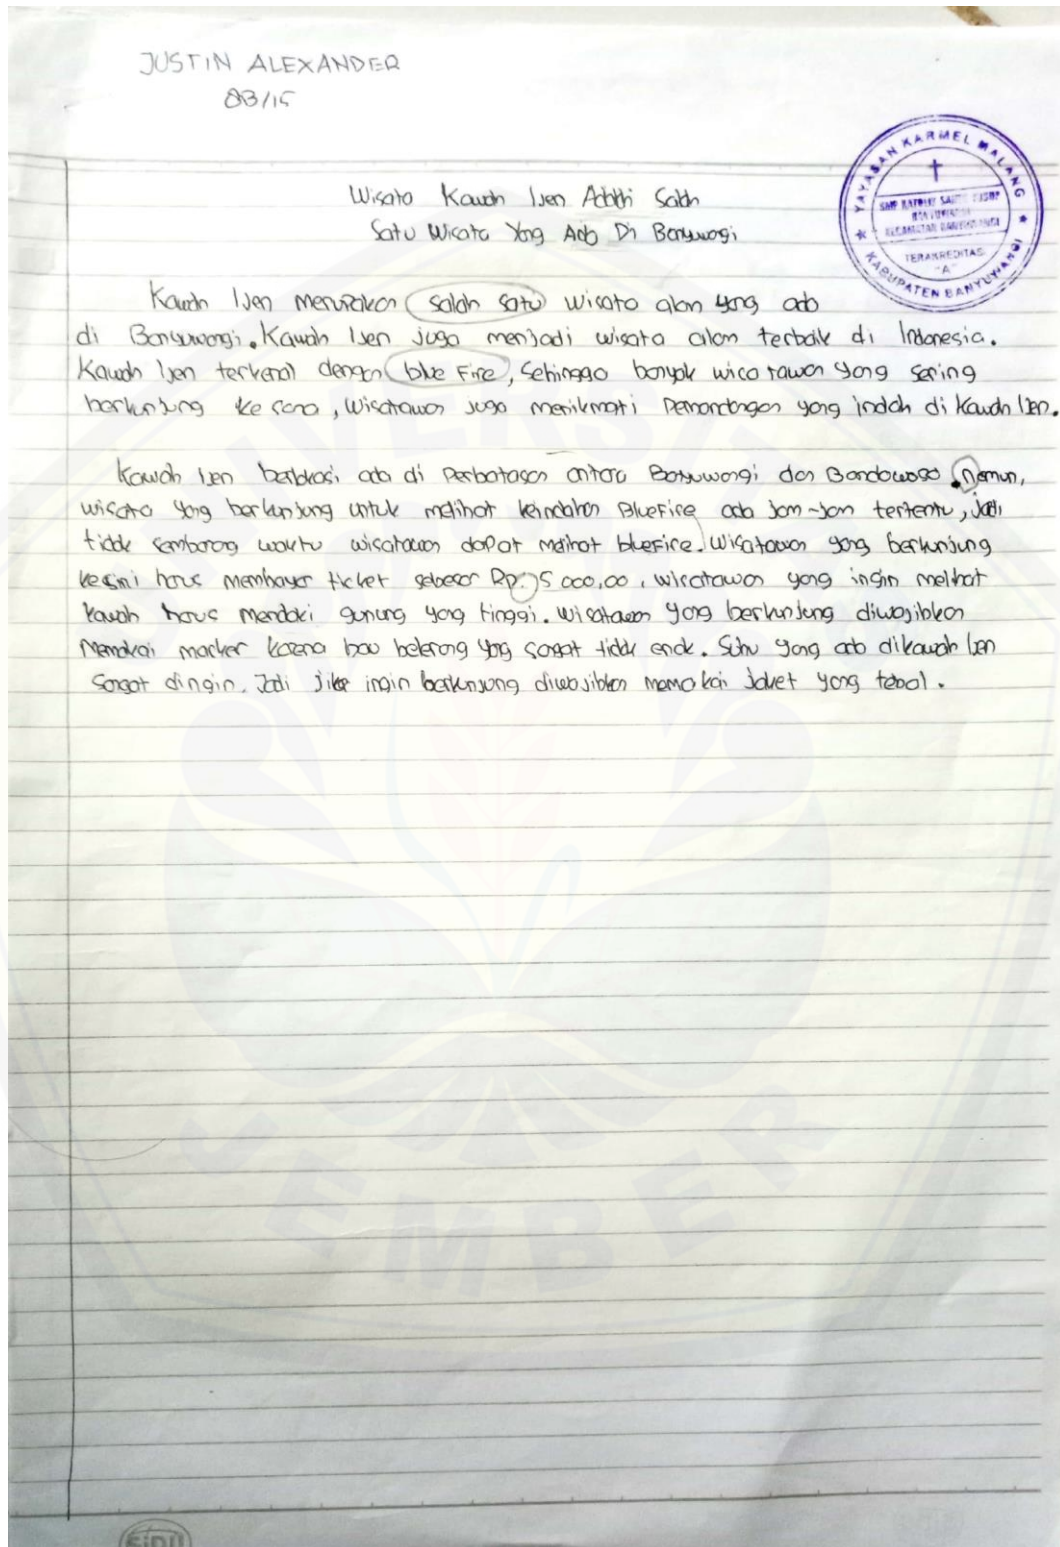 JUSTIN ALEXANDER
8B/15
YAYASAN KARMEL MALANG
TERAKREDITASI
"A"
KABUPATEN BANYUWANGI
Wisata Kawah Ijen Adalah Salah
Satu Wisata Yang Ada Di Banyuwagi
Kawah Ijen merupakan salah satu wisata alam yang ada
di Banyuwangi. Kawah Ijen juga menjadi wisata alam terbaik di Indonesia.
Kawah Ijen terkenal dengan blue Fire, Sehingga banyak wisatawan yang sering
berkunjung ke sana, Wisatawan juga menikmati Pemandangan yang indah di Kawah Ijen.
Kawah Ijen berlokasi ada di Perbatasan antara Banyuwangi dan Bondowoso. Namun,
wisata yang berkunjung untuk melihat keindahan BlueFire ada Jam-Jam tertentu, Jadi
tidak sembarang waktu wisatawan dapat melihat blueFire. Wisatawan yang berkunjung
kesini harus membayar ticket sebesar 5.000,00, wisatawan yang ingin melihat
kawah harus mendaki gunung yang tinggi. Wisatawan yang berkunjung diwajibkan
Memakai masker karena bau belerang yag sangat tidak enak. Suhu yang ada dikawah Ijen
sangat dingin, Jadi jika ingin berkunjung diwajibkan memakai Jaket yang tebal.
UNIVERSITAS
JEMBER